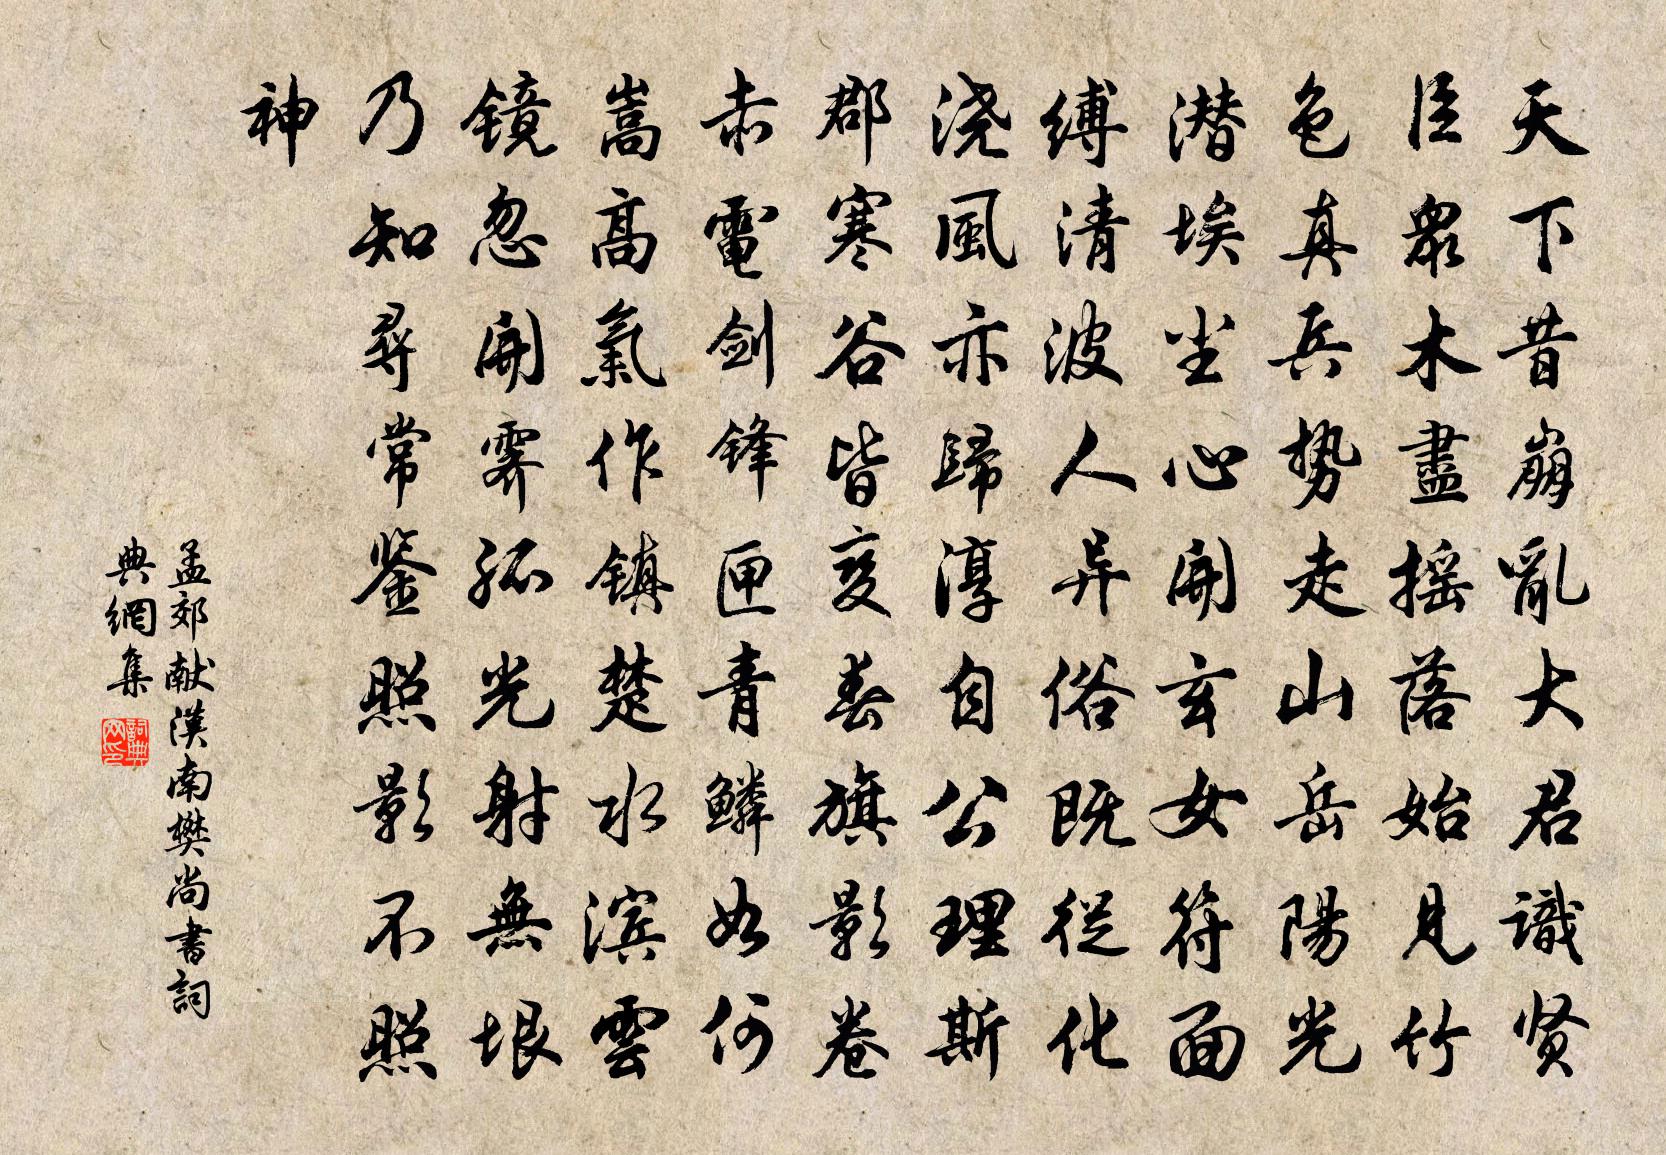 天下昔崩亂大君識贤
臣眾木盡摇落始見竹
色真兵势走山岳陽光
潜埃尘心開玄女符面
缚清波人异俗既從化
浇風亦歸淳自公理斯
郡寒谷皆变春旗影卷
赤電剑锋匣青鳞如何
嵩高氣作镇楚水滨雲
镜忽開霁孤光射無垠
乃知尋常鉴照影不照
神
孟郊献漢南樊尚書詞
典網集
詞典
网印